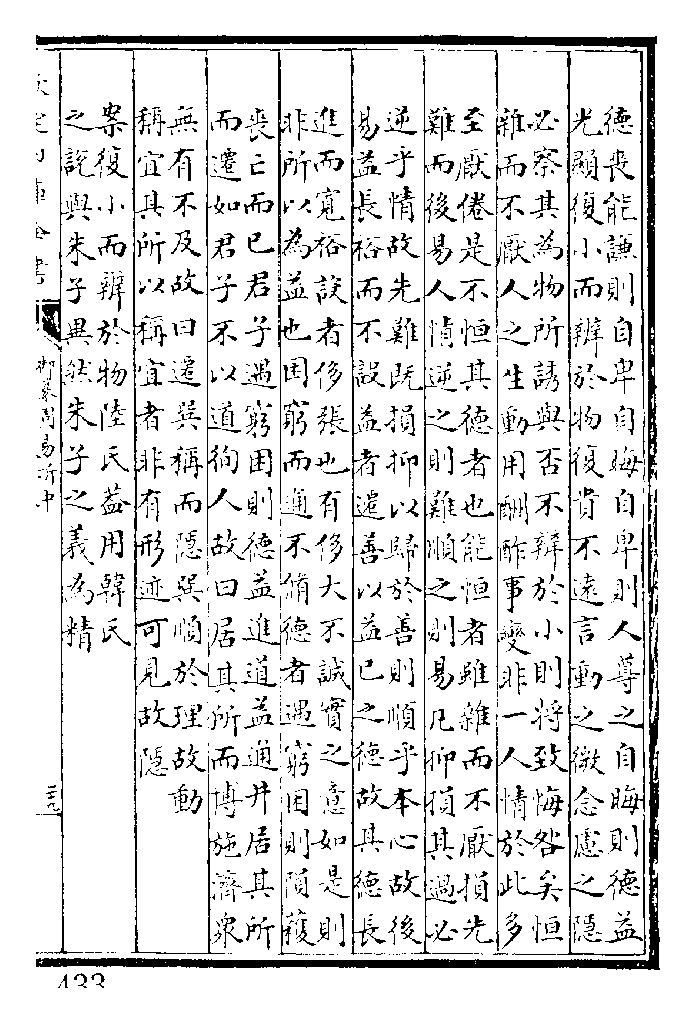 德喪能謙則自卑自晦自卑則人尊之自晦則德益
光顯復小而辨於物復貴不遠言動之微念慮之隱
必察其為物所誘與否不辨於小則將致悔咎矣恒
雜而不厭人之生動用酬酢事變非一人情於此多
至厭倦是不恒其德者也能恒者雖雜而不厭損先
難而後易人情逆之則難順之則易凡抑損其過必
逆乎情故先難既損抑以歸於善則順乎本心故後
易益長裕而不設益者遷善以益已之德故其德長
進而寛裕設者侈張也有侈大不誠實之意如是則
非所以為益也困窮而通不脩德者遇窮困則隕穫
喪亡而已君子遇窮困則德益進道益通井居其所
而遷如君子不以道徇人故曰居其所而博施濟衆
無有不及故曰遷巽稱而隱巽順於理故動
稱宜其所以稱宜者非有形迹可見故隱
案復小而辨於物陸氏蓋用韓氏
之說與朱子異然朱子之義為精
欽定四庫全書
御纂周易折中
二十九
433